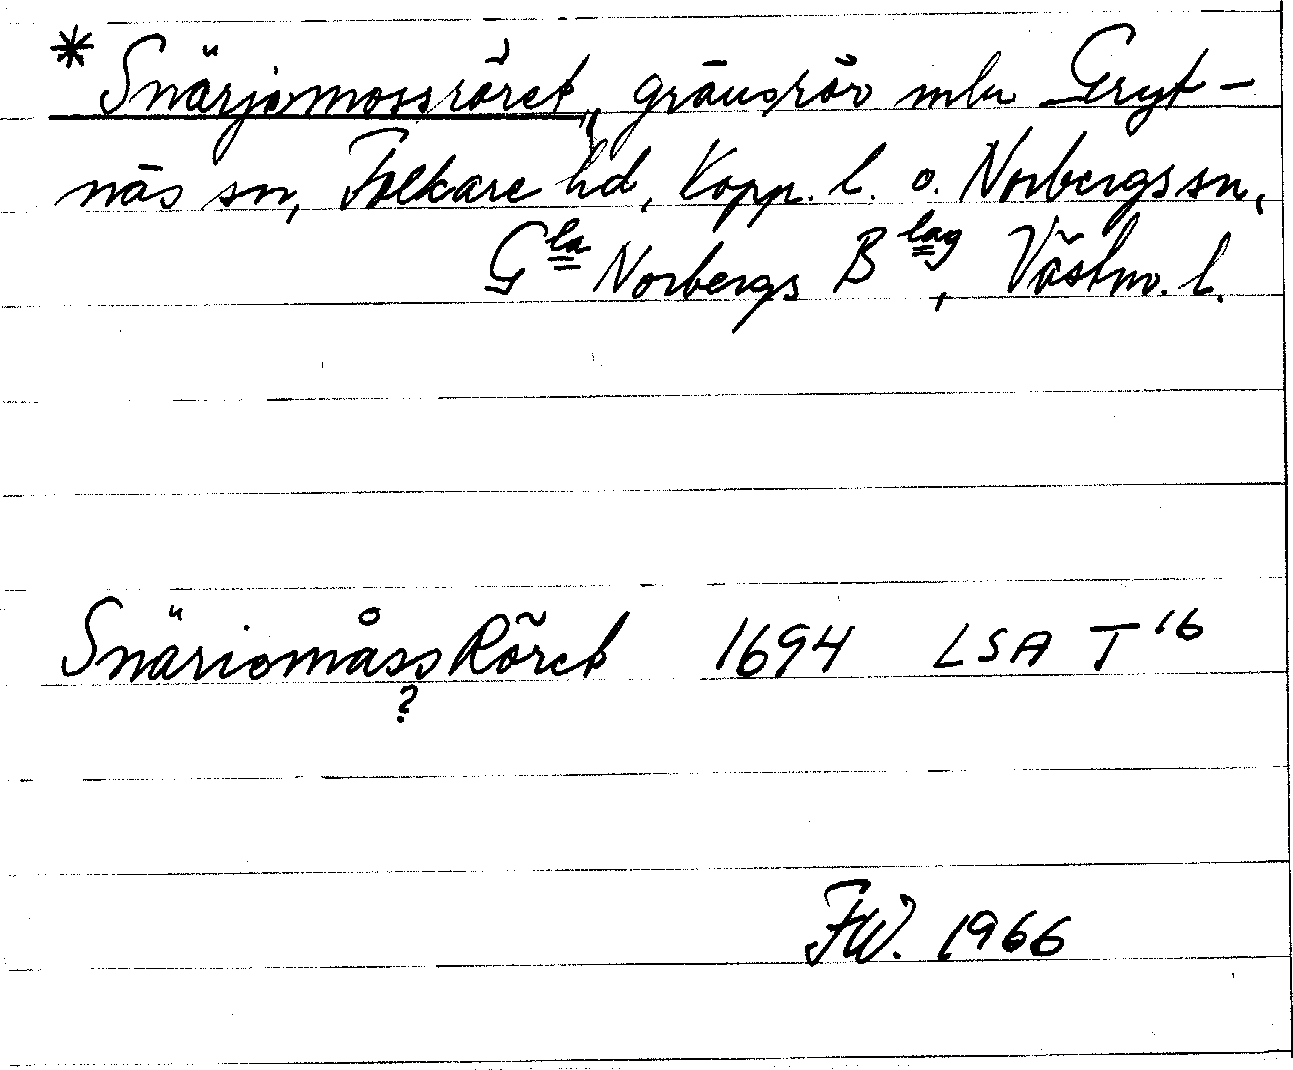 * Snärjemossröret, gränsrör mln Gryt-
näs sn, Folkare hd, Kopp. l. o. Norbergs sn,
Gla Norbergs Blag, Västm. l.
SnäriemåssRöret 1694 LSA T16
?
FW. 1966